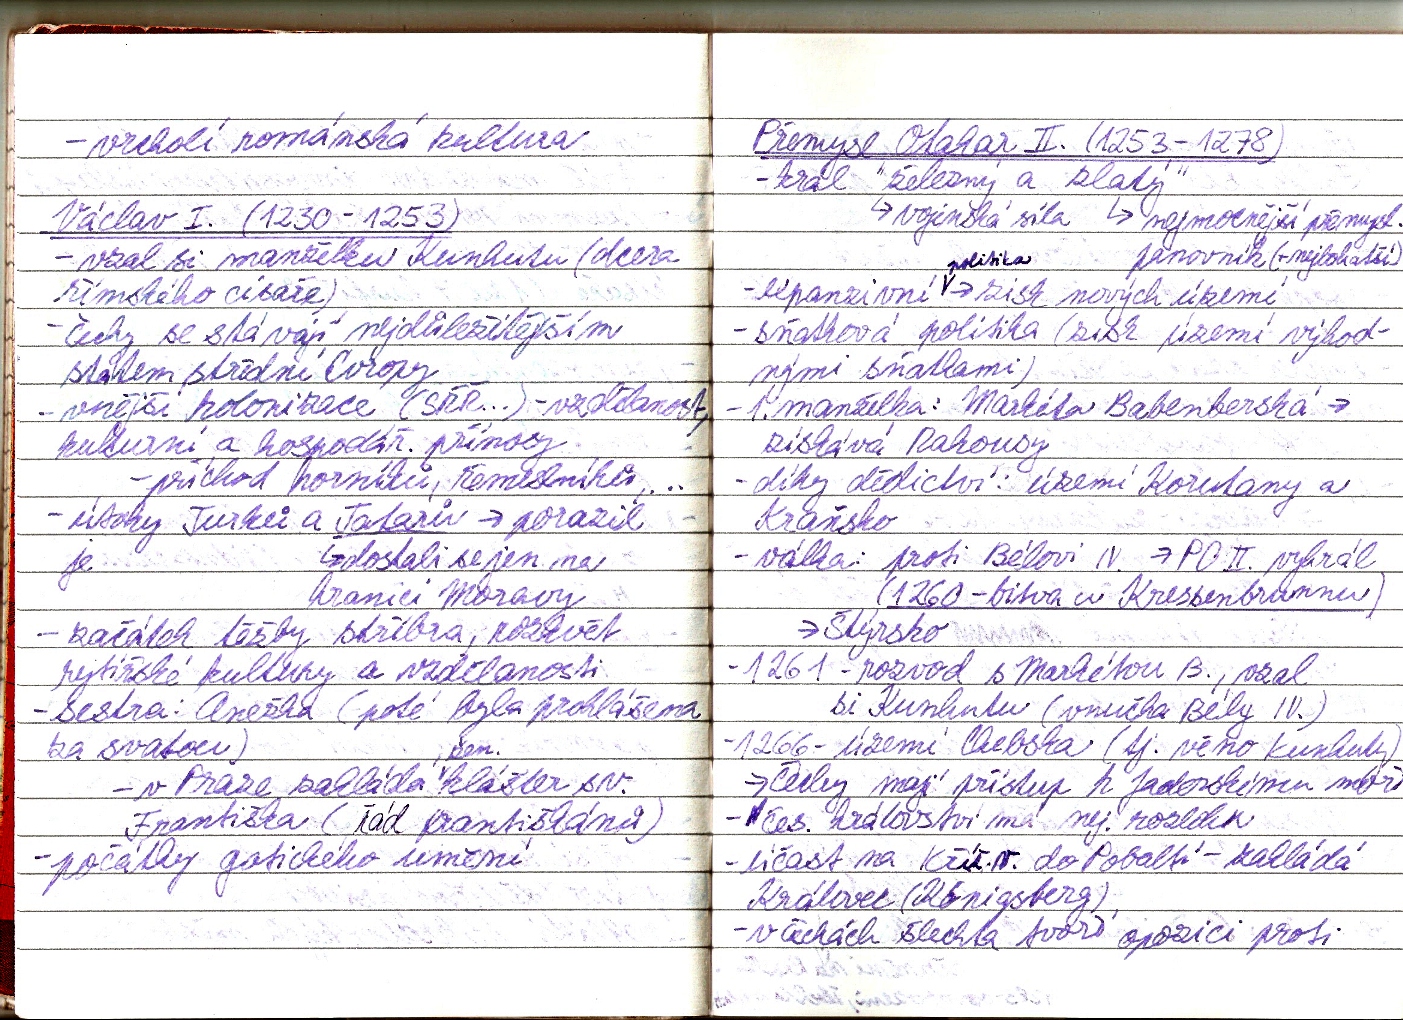 - vrcholí románská kultura
Václav I. (1230 - 1253)
- vzal si manželku Kunhutu (dcera
římského císaře)
- Čechy se stávají nejdůležitějším
státem střední Evropy
- vnější kolonizace (SŘŘ...) - vzdělanost,
kulturní a hospodář. přínosy
- příchod horníků, řemeslníků, ...
- útoky Turků a Tatarů → porazil
je ↳ dostali se jen na
hranici Moravy
- začátek těžby stříbra, rozkvět
rytířské kultury a vzdělanosti
- sestra: Anežka (poté byla prohlášena
za svatou)
žen.
- v Praze zakládá klášter sv.
Františka (řád františkánů)
- počátky gotického umění
Přemysl Otakar II. (1253 - 1278)
- král "železný a zlatý"
↳ vojenská síla ↳ nejmocnější přemysl.
panovník (+ nejbohatší)
politika
- expanzivní → zisk nových území
- sňatková politika (zisk území výhod-
nými sňatkami)
- 1. manželka: Markéta Babenberská →
získává Rakousy
- díky dědictví: území Korutany a
Kraňsko
- válka: proti Bélovi IV. → PO II. vyhrál
(1260 - bitva u Kressenbrunnu)
→ Štýrsko
- 1261 - rozvod s Markétou B., vzal
si Kunhutu (vnučka Bély IV.)
- 1266 - území Chebska (tj. věno Kunhuty)
→ Čechy mají přístup k Jaderskému moři
- Čes. království má nej. rozlohu
- účast na kříž. v. do Pobaltí - zakládá
Královec (Königsberg)
- v Čechách šlechta tvoří opozici proti